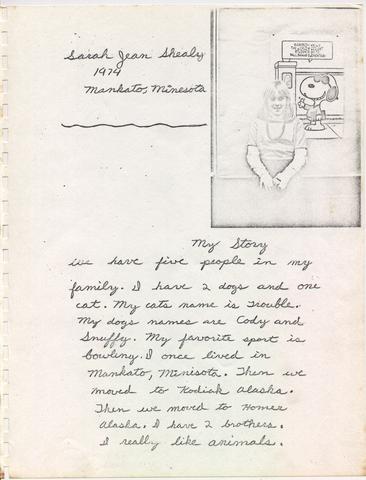 Sarah Jean Shealy
1979
Mankato, Minesota
My Story
we have five people in my
family. I have 2 dogs and one
cat. My cats name is Trouble.
My dogs names are Cody and
Snuffy. My favorite sport is
bowling. I once lived in
Mankato, Minisota. Then we
moved to Kodiak Alaska.
Then we moved to Homer
Alaska. I have 2 brothers.
I really like animals.